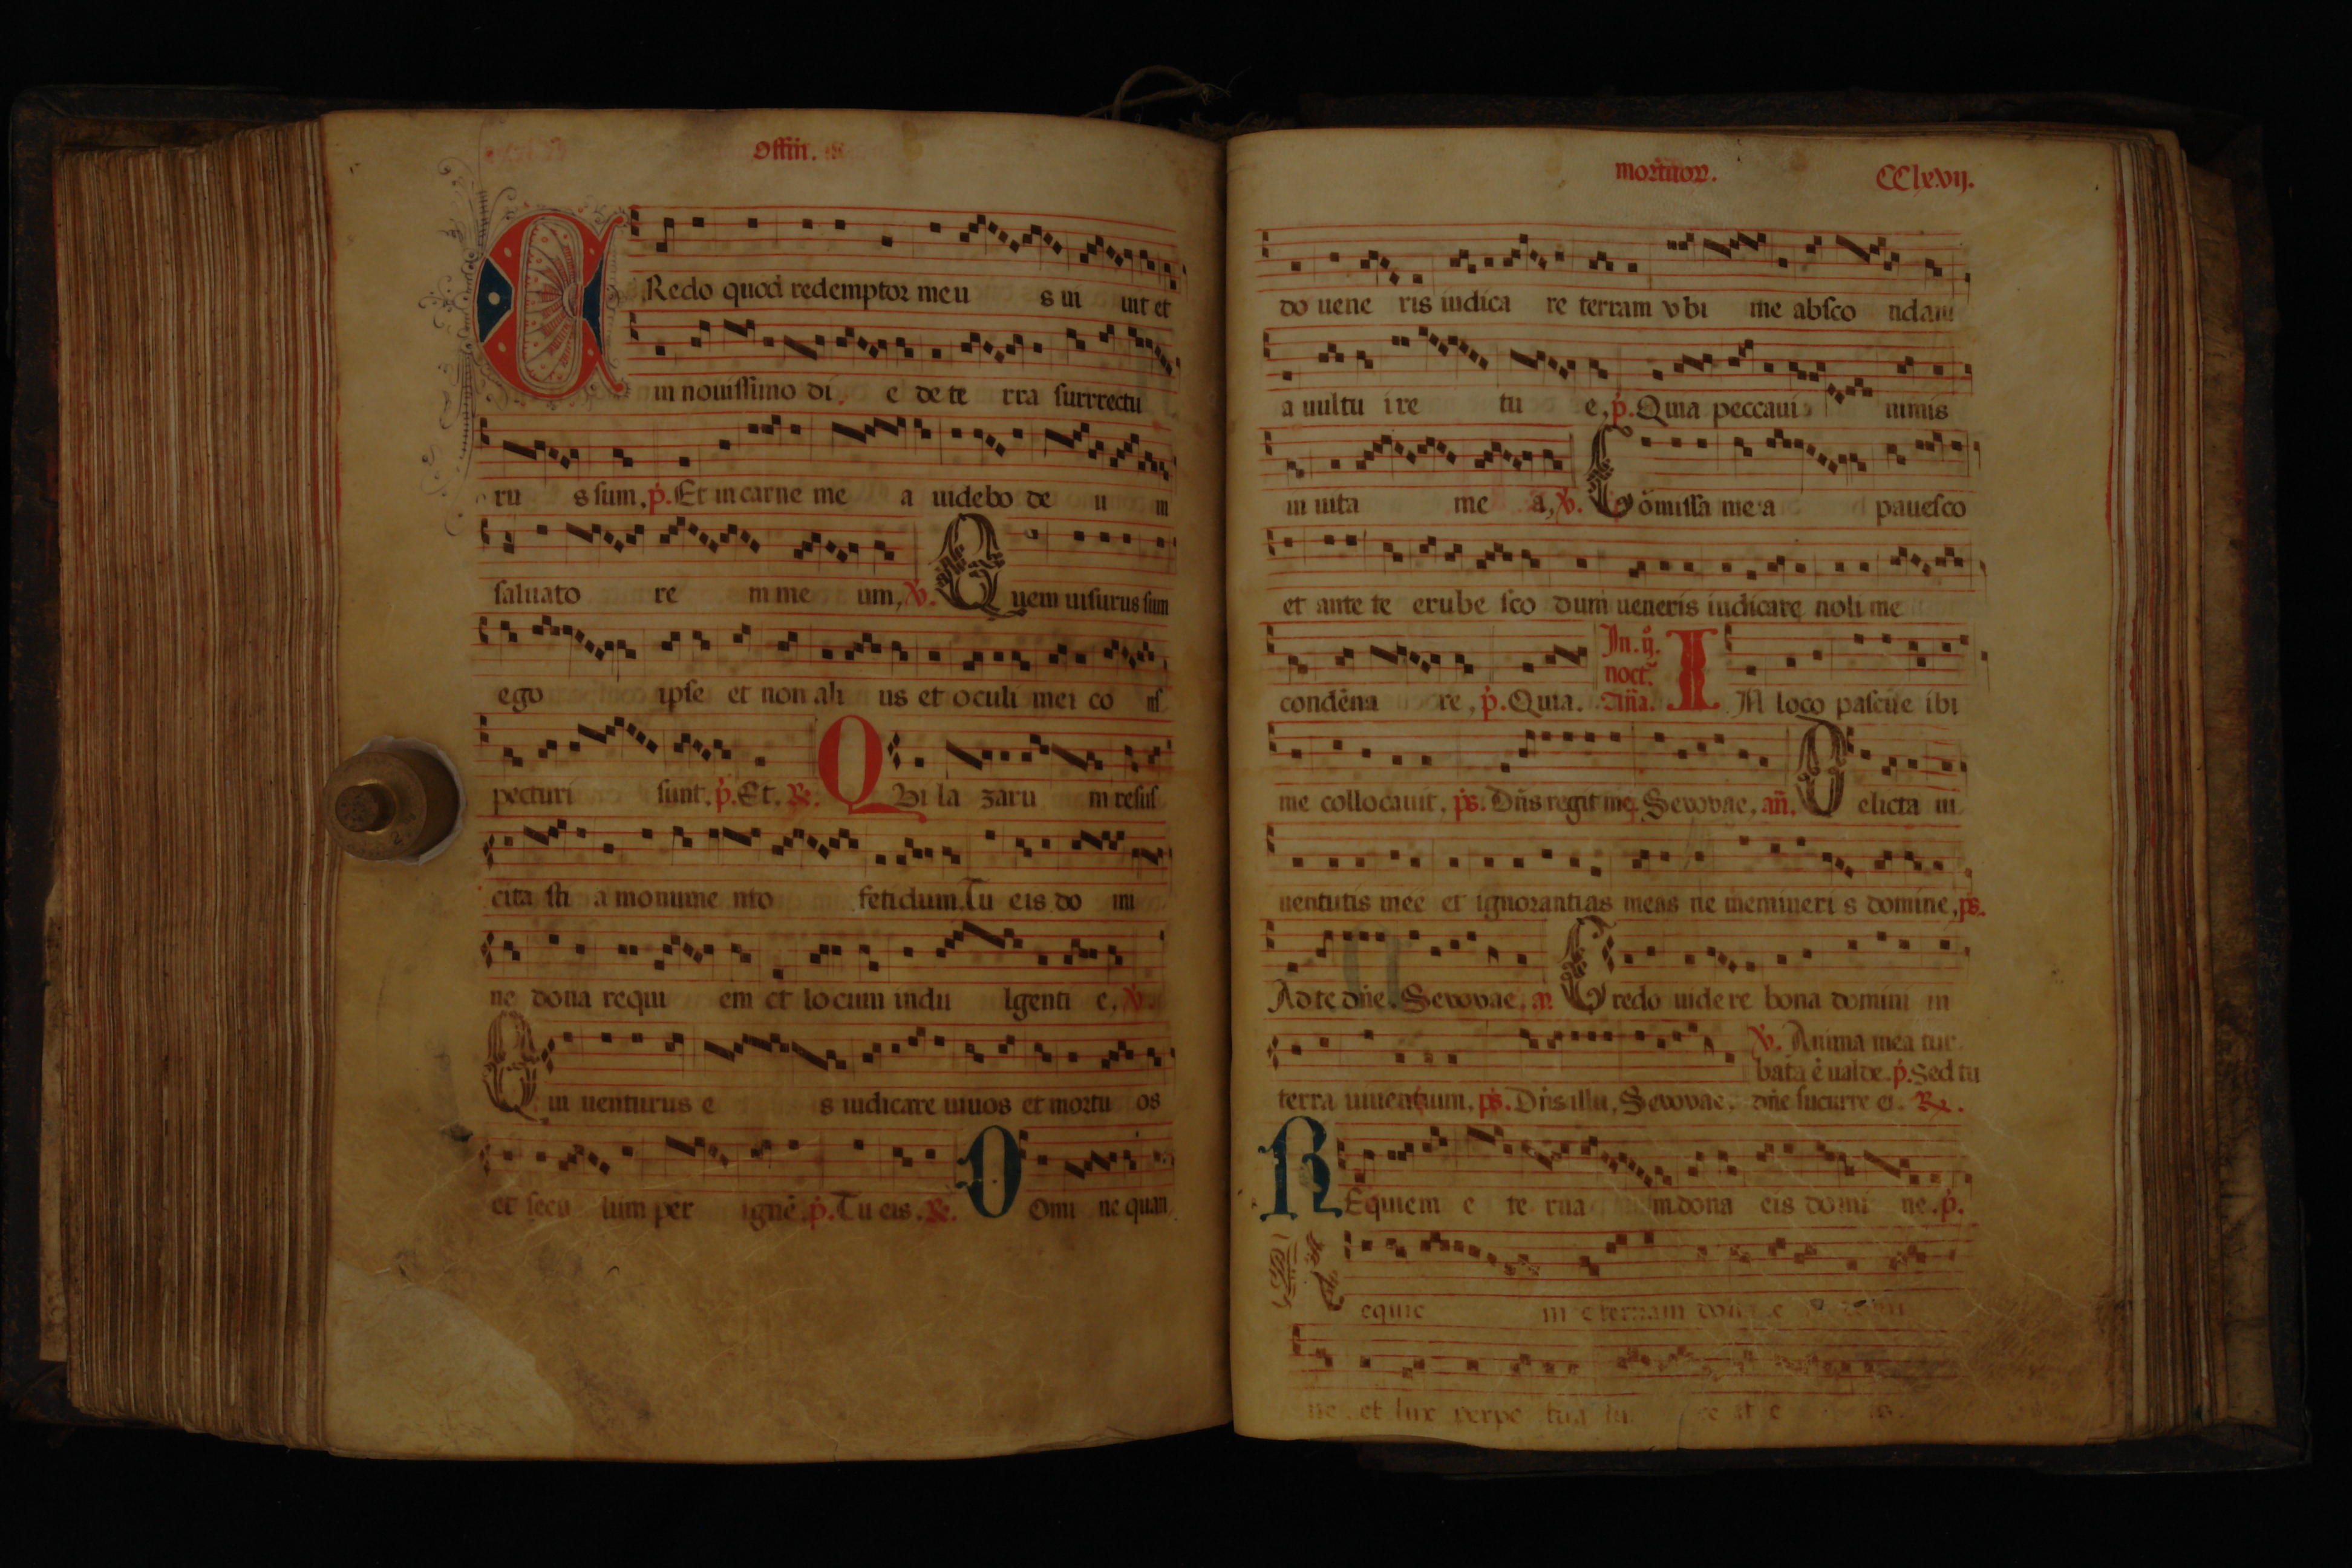 Offin.
CRedo quod redemptor meu s ui uit et
in nouissimo di e de te rra surrectu
ru s sum, p̊. Et in carne me a uidebo de u m
saluato re m me um, v̊. Quem uisurus sum
ego ipse et non ali us et oculi mei co nſ
pecturi sunt. p̊. Et. R̃. Qvi la zaru m resuſ
cita sti a monume nto fetidum. Tu eis do mi
ne dona requi em et locum indu lgenti e, v̊.
Qui uenturus e s iudicare uiuos et mortu os
et secu lum per ignē. p̊. Tu eis. R̃. DOmi ne quan
mortuoꝝ. CClxvij.
do uene ris iudica re terram vbi me absco ndam
a uultu i re tu e, p̊. Quia peccaui nimis
in uita me a, v̊. Cōmissa mea pauesco
et ante te erube sco dum ueneris iudicare noli me
condēna re, p̊. Quia. In. ij. noct̃. Añã. IN loco pascue ibi
me collocauit. ps̃. Dñs regit me. Seuouae, añ. Delicta iu
uentutis mee et ignorantias meas ne memineri s domine, ps̃.
Ad te dñe. Seuouae, añ. Credo uidere bona domini in
terra uiuentium, ps̃. Dñs illu. Seuouae, v̊. Anima mea tur
bata ē ualde. p̊. Sed tu
dñe sucurre ei. R̃.
REquiem e te rna m dona eis domi ne. p̊.
equie m eternam
ne. et lux perpe tua lu ce at e is.